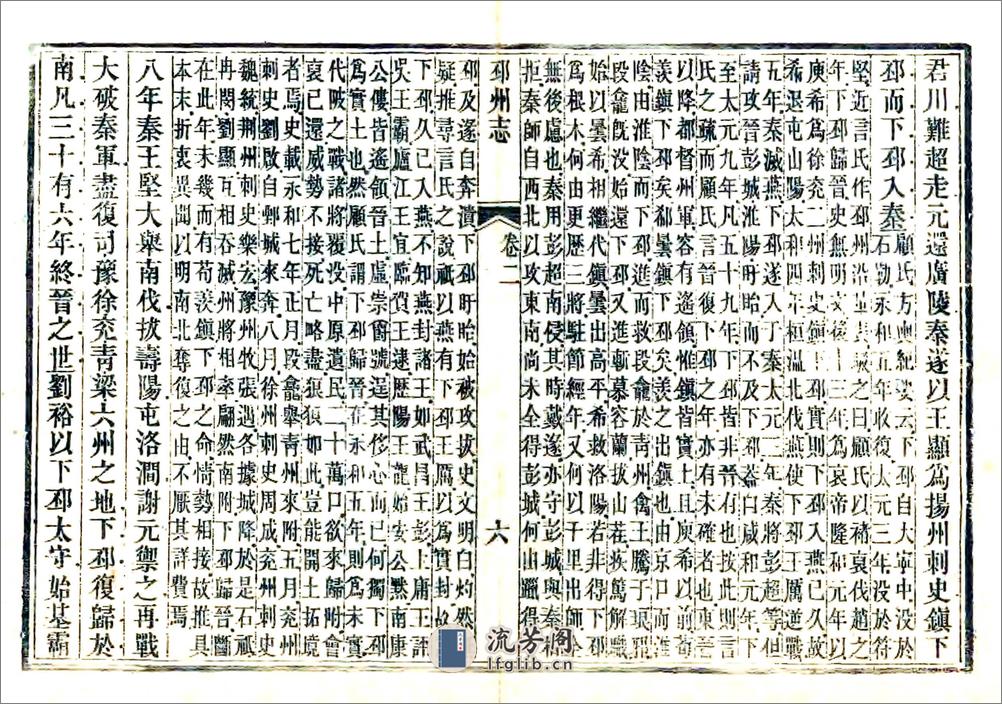 君川難超走元還廣陵秦遂以王顯爲揚州刺史鎮下
邳而下邳入秦
顧氏方輿紀要云下邳自大寧中没於
石勒永和五年收復太元三年没於符
堅近言氏作邳州沿革表駁之曰顧氏以褚裒伐趙之
年下邳歸晉史無明文後十三年爲哀帝隆和元年以
庾希爲徐兗二州刺史鎮下邳實則下邳入燕已久故
希退屯山陽太和四年桓温北伐燕使下邳王厲逆戰
五年秦滅燕下邳遂入于秦太元二年秦將彭超等但
請攻晉彭城淮陽盱眙而不及下邳蓋自咸和元年
至太元九年凡五十九年下邳皆非晉有也按此則言
氏之疏而顧氏言晉復下邳之年亦有未確者按東
以降都督州軍容有遥領惟鎮皆實土且庾希以前荀
羨鎮下邳矣郗曇鎮下邳矣羨之出禽也由京口而
陰由淮陰而下邳始進而救段龕於青州禽王騰于琅邪
段龕旣没始還下邳又進斬慕容蘭拔山茌疾篤解職
始以曇希相繼代鎮曇出高平希救洛陽若非得下邳
爲根本何由更歷三將駐節經年又何以千里出師全
無後慮也秦用彭超南侵其時戴遁亦守彭城與秦相
拒秦師自西北以攻東南尚未全得彭城何由躐得
邳州志
卷二
六
邳及遂自奔潰下邳盱眙始被攻拔史文明白灼然無
疑推尋言氏之說祇以燕有下邳王厲以爲實封故
下邳久已入燕不知燕封諸王如武昌王彭上庸王評
吳王霸廬江王宜臨賀王逮歷陽王龍始安公黙南康
公僂皆遥領晉土虛崇爵號逞其侈心而已何獨下邳
爲實土也然顧氏謂下邳歸晉在永和五年則爲未實
代陂之戰諸將覆没中原遺民二十萬口欲來歸附會
裒已還威勢不接死亡略盡狼狽如此豈能開土拓境
者焉史載永和七年正月段龕舉青州來附五月兗州
刺史劉啟自鄄城來奔八月徐州刺史周成兗州刺史
魏統荊州刺史樂宏豫州牧張遇各據城降於是石祇
冉閔劉顯互相吞滅州將相率翩然南附下邳歸晉當
在此年未幾而有荀羨鎮下邳之命情勢相接故推具
本末折衷異聞以明南北奪復之由不厭其詳費焉
八年秦王堅大舉南伐拔壽陽屯洛澗謝元禦之再戰
大破秦軍盡復司豫徐兗青梁六州之地下邳復歸於
南凡三十有六年終晉之世劉裕以下邳太守始基霸
流芳閣
lfglib.cn